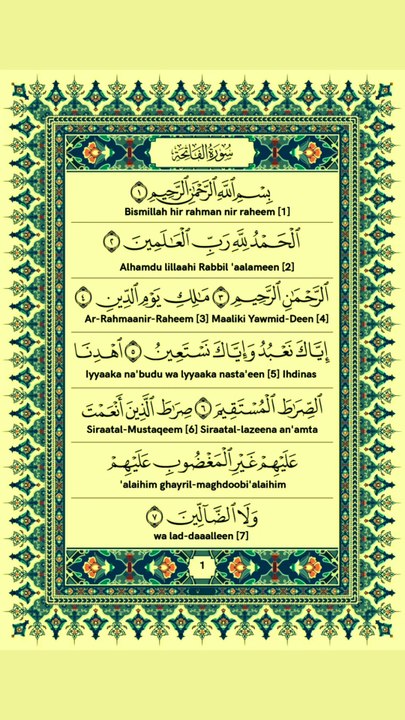 سُورَةُ الفَاتِحَةِ
بِسْمِ ٱللَّهِ ٱلرَّحْمَٰنِ ٱلرَّحِيمِ ١
Bismillah hir rahman nir raheem [1]
ٱلْحَمْدُ لِلَّهِ رَبِّ ٱلْعَٰلَمِينَ ٢
Alhamdu lillaahi Rabbil 'aalameen [2]
ٱلرَّحْمَٰنِ ٱلرَّحِيمِ ٣ مَٰلِكِ يَوْمِ ٱلدِّينِ ٤
Ar-Rahmaanir-Raheem [3] Maaliki Yawmid-Deen [4]
إِيَّاكَ نَعْبُدُ وَإِيَّاكَ نَسْتَعِينُ ٥ ٱهْدِنَا
Iyyaaka na'budu wa lyyaaka nasta'een [5] Ihdinas
ٱلصِّرَٰطَ ٱلْمُسْتَقِيمَ ٦ صِرَٰطَ ٱلَّذِينَ أَنْعَمْتَ
Siraatal-Mustaqeem [6] Siraatal-lazeena an'amta
عَلَيْهِمْ غَيْرِ ٱلْمَغْضُوبِ عَلَيْهِمْ
'alaihim ghayril-maghdoobi'alaihim
وَلَا ٱلضَّآلِّينَ ٧
wa lad-daaalleen [7]
1